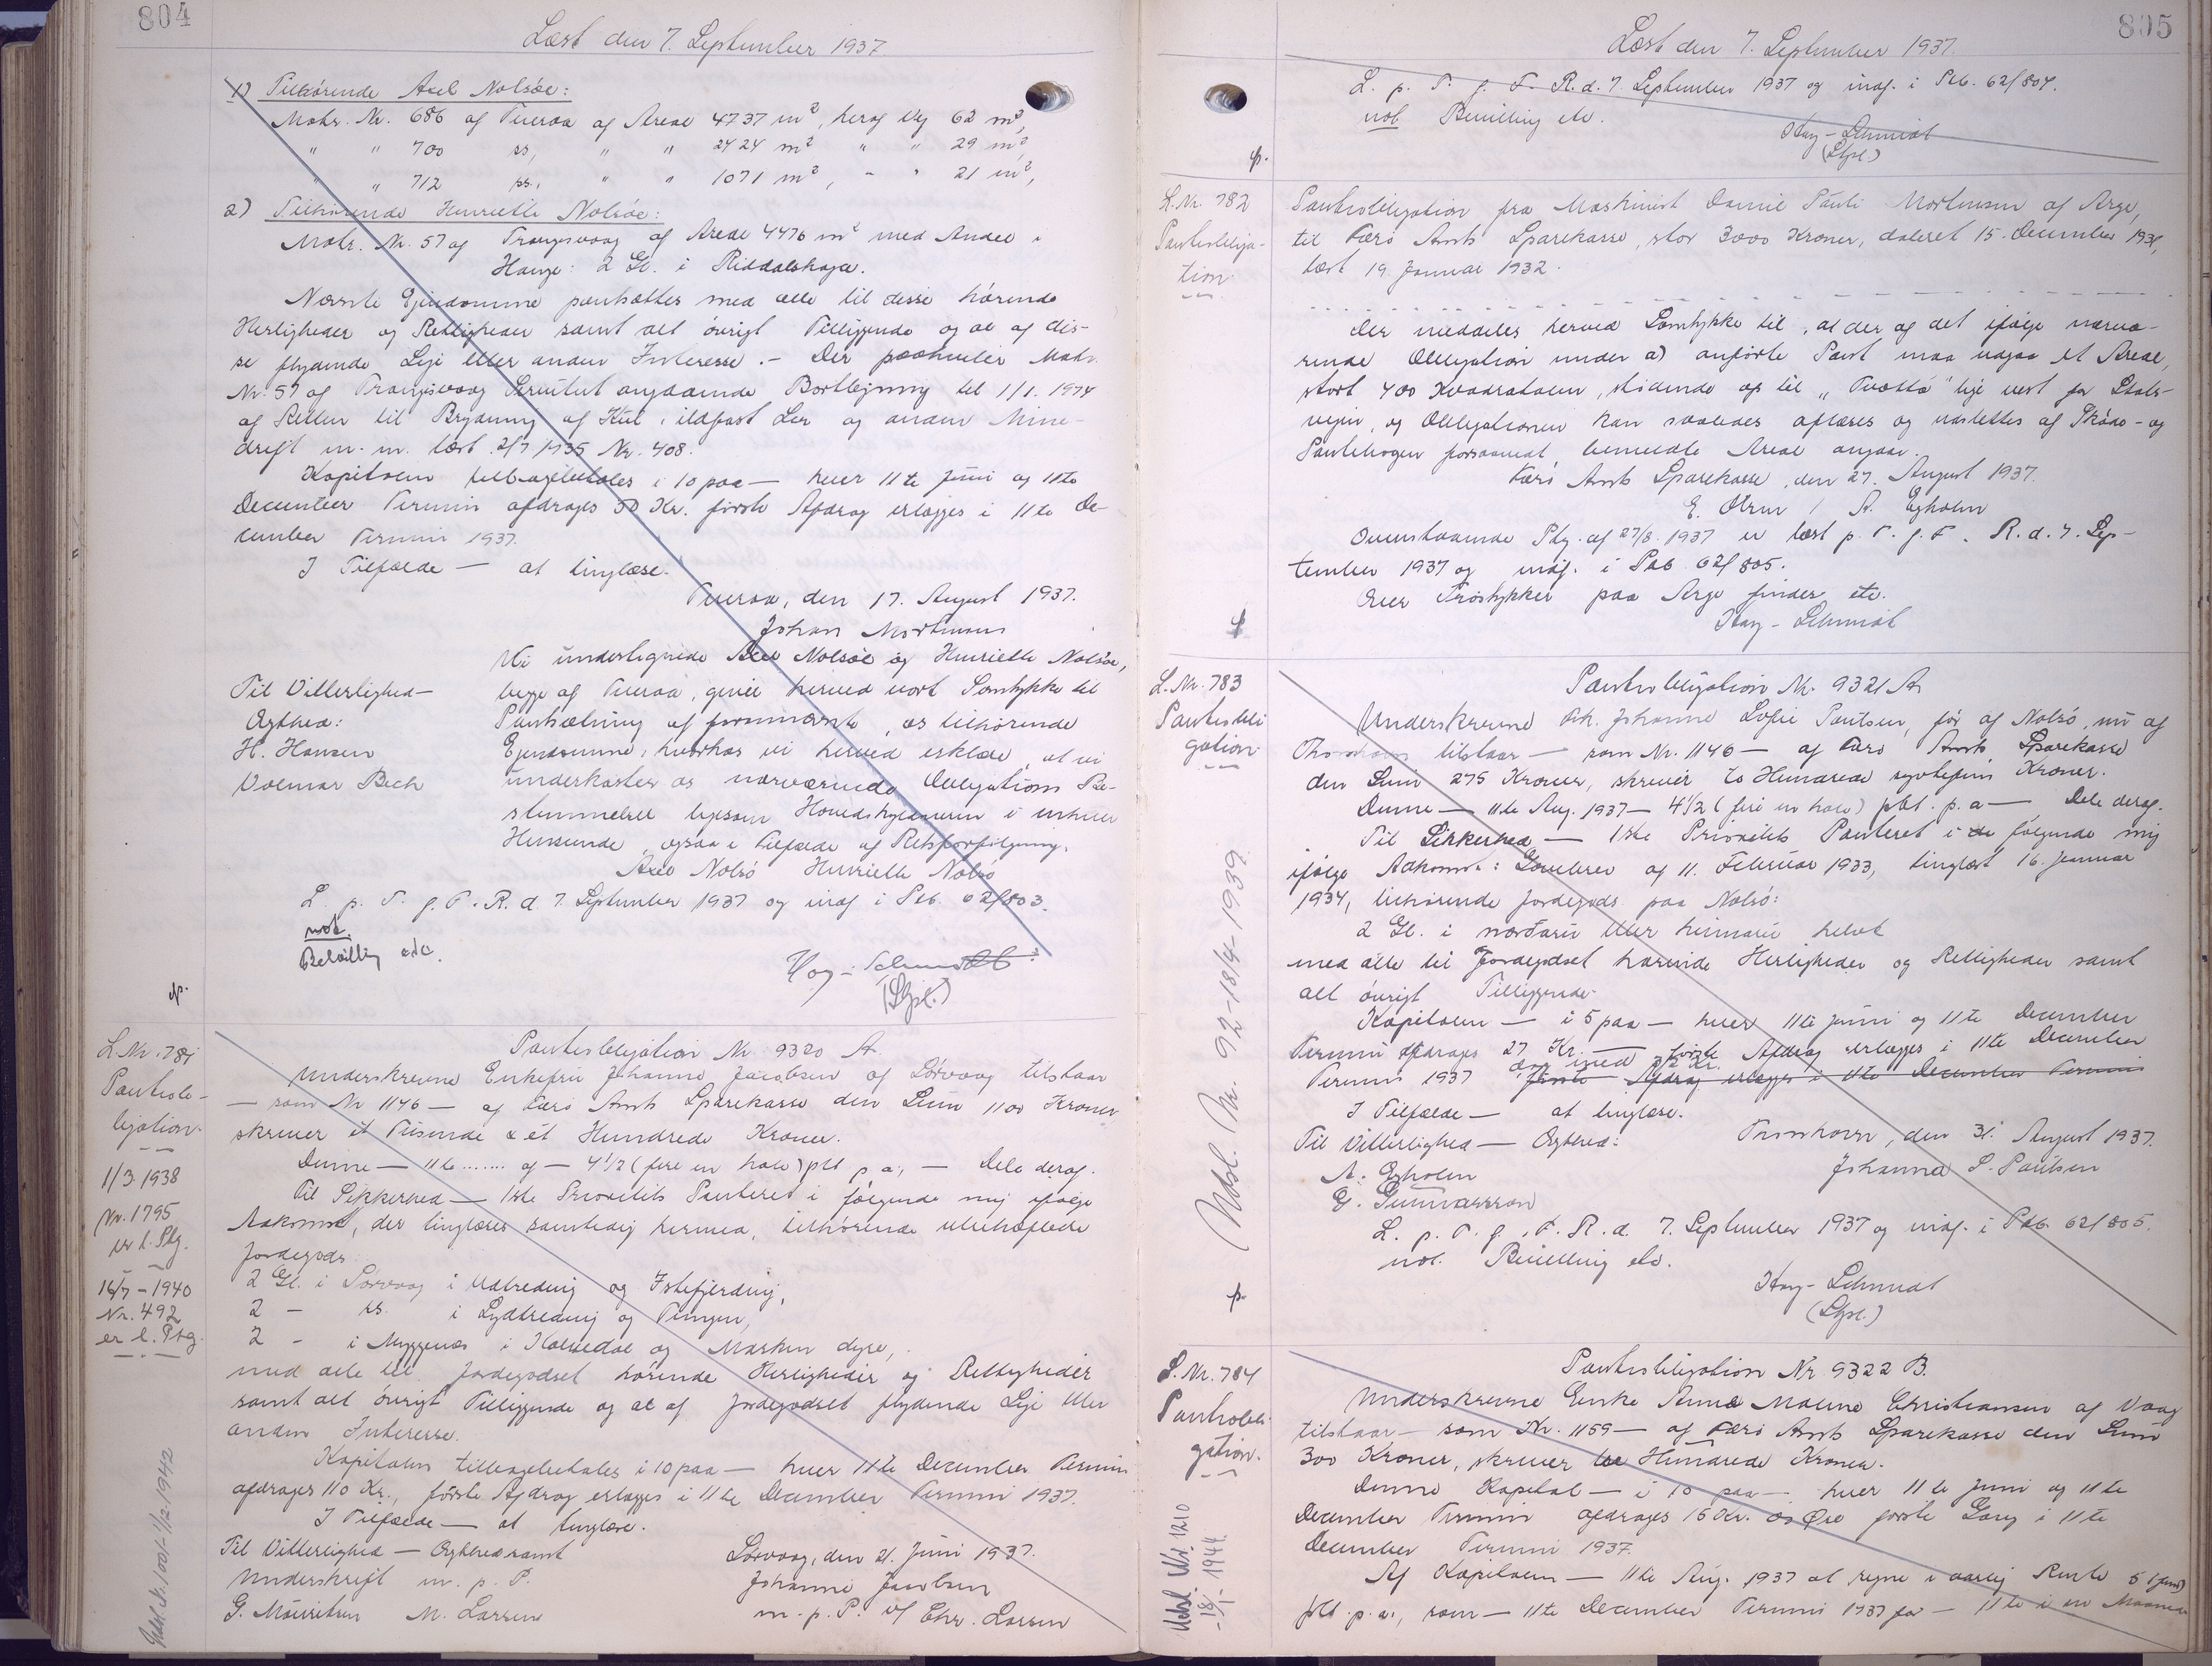 804
Læst den 7. September 1937
1) Tilhørende Axel Nolsøe:
Matr. Nr. 686 af Tveraa af Areal 4737 m², heraf Vej 62 m²,
" " 700 ss, " " 2424 m² " " 29 m²,
" " 712 ss, " " 1071 m², " " 21 m²,
2) Tilhørende Henriette Nolsøe:
Matr. Nr. 57 af Trangisvaag af Areal 4476 m² med Andel i
Hauge: 2 Gl. i Riddalshaga.
Nævnte Ejendomme pantsættes med alle til disse hørende
Herligheder og Rettigheder samt alt øvrigt Tilliggende og al af dis-
se flydende Leje eller anden Interesse. - Der paahviler Matr.
Nr. 57 af Trangisvaag Servitut angaaende Bortlejning til 1/1. 1974
af Retten til Brydning af Kul, ildfast Ler og anden Mine-
drift m. m. læst 2/7 1935 Nr. 408.
Kapitalen tilbagebetales i 10 paa — hver 11te Juni og 11te
December Termin afdrages 50 Kr. første Afdrag erlægges i 11te De-
cember Termin 1937.
I Tilfælde — at tinglæse.
Tveraa, den 17. August 1937.
Johan Mortensen
Vi undertegnede Axel Nolsøe og Henriette Nolsøe,
Til Vitterlighed —
begge af Tveraa, giver herved vort Samtykke til
Ægthed:
Pantsætning af forannævnte, os tilhørende
H. Hansen
Ejendomme, hvorhos vi herved erklære, at vi
Volmar Bech
underkaster os nærværende Obligations Be-
stemmelser ligesom Hovedskyldneren i enhver
Henseende, ogsaa i Tilfælde af Retsforfølgning.
Axel Nolsø Henriette Nolsø
L. p. T. f. F. R. d. 7. September 1937 og indf. i Pkb. 62/803.
not.
Bevilling etc.
Hay-Schmidt
(Stpl.)
p.
L. Nr. 781
Pantob-
ligation.
1/3 1938
Nr. 1795
er l. Ptg.
16/7 - 1940
Nr. 492
er l. Ptg.
Udsl. Nr. 1001 - 1/12 1942
Pantobligation Nr. 9320 A.
Underskrevne Enkefru Johanne Jacobsen af Sørvaag tilstaar
— som Nr 1146 — af Færø Amts Sparekasse den Sum 1100 Kroner,
skriver et Tusinde & ét Hundrede Kroner.
Denne — 11te ....... af — 4½ (fire en halv) pCt p. a., — Dele deraf.
Til Sikkerhed — 1ste Prioritets Panteret i følgende mig ifølge
Adkomst, der tinglæses samtidig hermed, tilhørende ubehæftede
Jordegods:
2 Gl. i Sørvaag i Udtredning og Istefjerding,
2 - ss. i Lydtredning og Tungen,
2 - i Myggenæs i Kalvedal og Marken dyre,
med alle til Jordegodset hørende Herligheder og Rettigheder
samt alt øvrigt Tilliggende og al af Jordegodset flydende Leje eller
anden Interesse.
Kapitalen tilbagebetales i 10 paa — hver 11te December Termin
afdrages 110 Kr., første Afdrag erlægges i 11te December Termin 1937.
I Tilfælde — at tinglæse.
Til Vitterlighed — Ægthed samt
Sørvaag, den 21. Juni 1937.
Underskrift m. p. P.
Johanne Jacobsen
G. Mouritsen M. Larsen
m. p. P. v/ Chr. Larsen
805
Læst den 7. September 1937
L. p. T. f. F. R. d. 7. September 1937 og indf. i Pkb. 62/804.
not. Bevilling etc.
Hay-Schmidt
(Stpl.)
p.
L. Nr. 782
Pantobliga-
tion
Pantobligation fra Maskinist Daniel Pauli Mortensen af Arge,
til Færø Amts Sparekasse, stor 3000 Kroner, dateret 15. December 1931,
læst 19. Januar 1932.
Der meddeles herved Samtykke til, at der af det ifølge nærvæ-
rende Obligation under a) anførte Pant maa udgaa et Areal,
stort 400 Kvadratalen, stødende op til "Tvøttá" lige vest for Stats-
vejen, og Obligationen kan saaledes aflæses og udslettes af Skøde- og
Pantebogen forsaavidt bemeldte Areal angaar.
Færø Amts Sparekasse, den 27. August 1937.
E. Olrun / A. Egholm
Ovenstaaende Ptg. af 27/8. 1937 er læst p. T. f. F. R. d. 7. Sep-
tember 1937 og indf. i Pkb 62/805.
Over Trøstykker paa Arge findes etc.
Hay-Schmidt
p
L. Nr. 783
Pantobli-
gation
Udsl. Nr. 92 - 18/4 1939
Pantobligation Nr. 9321 A
Underskrevne Frk. Johanne Sofie Poulsen, før af Nolsø, nu af
Thorshavn tilstaar — som Nr. 1146 — af Færø Amts Sparekasse
den Sum 275 Kroner, skriver to Hundrede syvtifem Kroner.
Denne — 11te Aug. 1937 — 4½ (fire en halv) pCt. p. a — Dele deraf.
Til Sikkerhed — 1ste Prioritets Panteret i følgende mig
ifølge Adkomst: Gavebrev af 11. Februar 1933, tinglæst 16. Januar
1934, tilhørende Jordegods paa Nolsø:
2 Gl. i nordari eller heimari helvt
med alle til Jordegodset hørende Herligheder og Rettigheder samt
alt øvrigt Tilliggende.
Kapitalen — i 5 paa — hver 11te Juni og 11te December
Termin afdrages 27 Kr. — første Afdrag erlægges i 11te December
Termin 1937 dog med 32 Kr. første Afdrag erlægges i 11te December Termin
I Tilfælde — at tinglæse.
Til Vitterlighed — Ægthed:
Thorshavn, den 31. August 1937.
A. Egholm
Johanne S. Poulsen
G. Gunnarsson
L. p. T. f. F. R. d. 7. September 1937 og indf. i Pkb. 62/805.
not. Bevilling etc.
Hay-Schmidt
(Stpl.)
p.
L. Nr. 784
Pantobli-
gation.
Udsl. Nr. 1210
- 18/1 - 1944.
Pantobligation Nr 9322 B.
Underskrevne Enke Anna Malene Christiansen af Vaag
tilstaar — som Nr. 1159 — af Færø Amts Sparekasse den Sum
300 Kroner, skriver tre Hundrede Kroner.
Denne Kapital — i 10 paa — hver 11te Juni og 11te
December Termin afdrages 15 Kr. Øre første Gang i 11te
December Termin 1937.
Af Kapitalen — 11te Aug. 1937 at regne i aarlig Rente 5 (fem)
pCt. p. a., som — 11te December Termin 1937 for — 11te i en Maaned